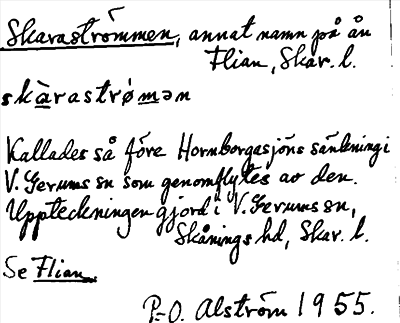 Skaraströmmen, annat namn på ån
Flian, Skar. l.
skàrastrømən
Kallades så före Hornborgasjöns sänkning i
V. Gerums sn som genomflytes av den.
Uppteckningen gjord i V. Gerums sn,
Skånings hd, Skar. l.
Se Flian.
P.-O. Alström 1955.